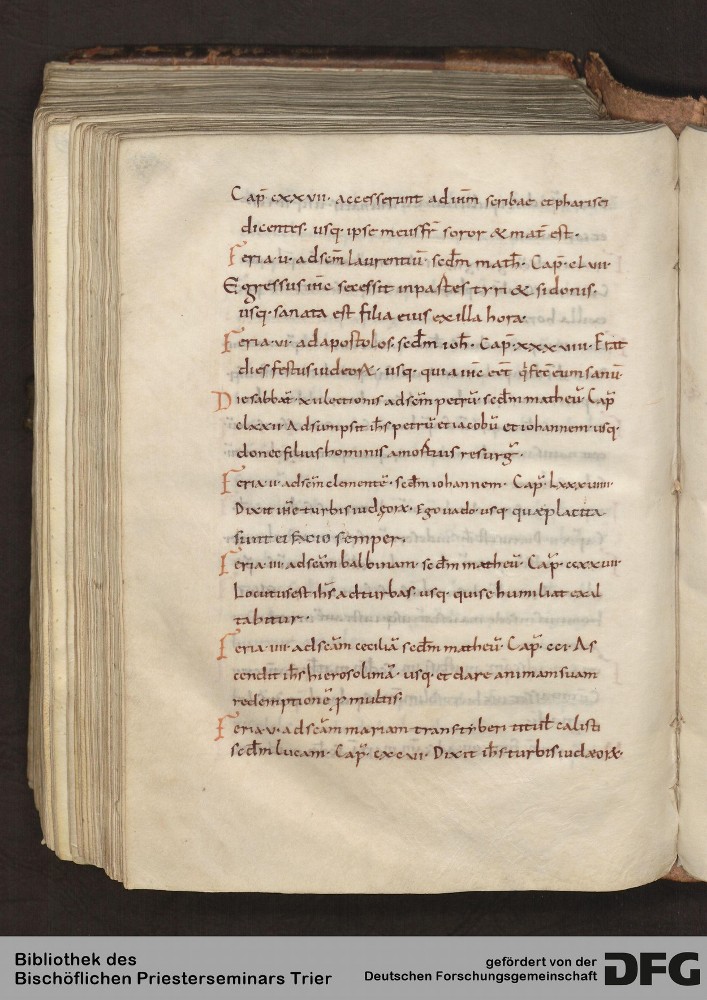 Cap̄ cxxvii· accesserunt ad ih̄m scribae et pharisei
dicentes· usq· ipse meus fr̄ soror & mat̄ est·
Feria·v· ad sc̄m laurentiū· sec̄dm math̄· Cap̄· clvii·
Egressus ih̄e secessit in partes tyri & sidonis·
usq· sanata est filia eius ex illa hora·
Feria·vi· ad apostolos· sec̄dm ioh̄· Cap̄· xxxviii· Erat
dies festus iudeorꝝ· usq· quia ih̄c eēt q̄ fec̄ eum sanū·
Die sabbat̄· xii lectionis ad sc̄m petrū· sec̄dm matheū· Cap̄
clxxii· Adsumpsit ih̄s petrū et iacobū et iohannem· usq·
donec filius hominis a mortuis resurḡ·
Feria·ii· ad sc̄m clementē· sec̄dm iohannem· Cap̄· lxxxviiii·
Dixit ih̄c turbis iudęorꝝ· Ego uado· usq· quae placita
sunt ei facio semper·
Feria·iii· ad sc̄am balbinam· sec̄dm matheū· Cap̄· ccxxviii·
Locutus est ih̄s ad turbas· usq· qui se humiliat exal
tabitur·
Feria·iiii· ad sc̄am ceciliā sec̄dm matheū· Cap̄· cci· As
cendit ih̄s hierosolimā· usq· et dare animam suam
redemptionē p̱ multis·
Feria·v· ad sc̄am mariam transtyberi titul̄ calisti
sec̄dm lucam· Cap̄· cxcvi· Dixit ih̄s turbis iudaeorꝝ·
Bibliothek des
Bischöflichen Priesterseminars Trier
gefördert von der
Deutschen Forschungsgemeinschaft
DFG